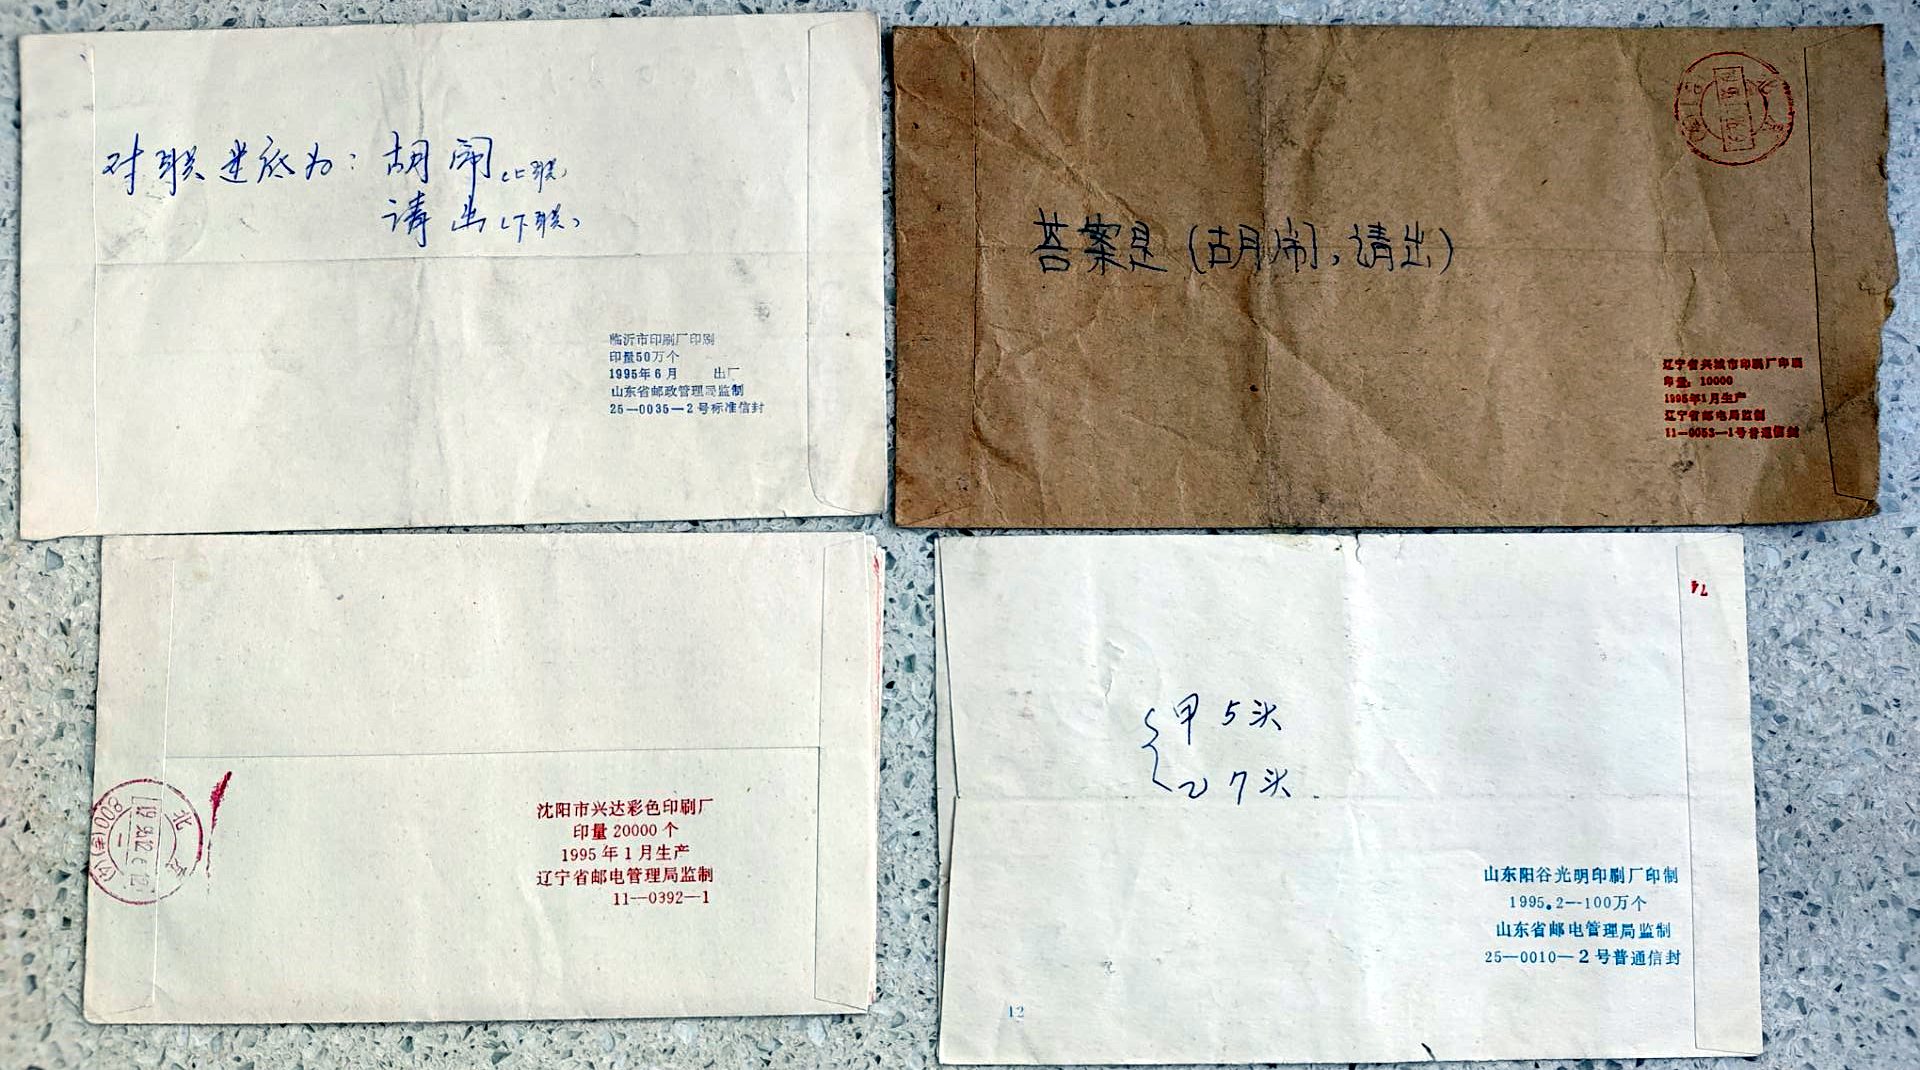 对联迷底为：胡闹（上联）
请出（下联）
临沂市印刷厂印刷
印量50万个
1995年6月 出厂
山东省邮政管理局监制
25—0035—2号标准信封
答案是（胡闹，请出）
辽宁省兴城市印刷厂印刷
印量：10000
1995年1月生产
辽宁省邮电局监制
11—0053—1号普通信封
北京
沈阳市兴达彩色印刷厂
印量20000个
1995年1月生产
辽宁省邮电管理局监制
11—0392—1
74
甲5头
乙7头.
山东阳谷光明印刷厂印制
1995.2—100万个
山东省邮电管理局监制
25—0010—2号普通信封
12